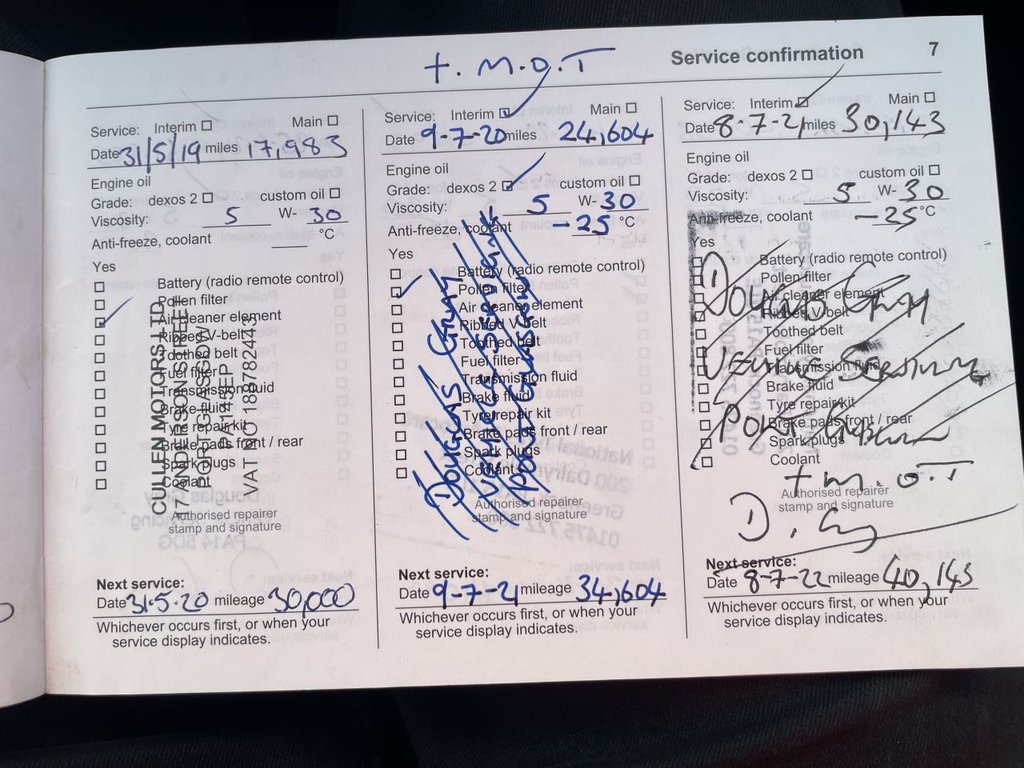 + . M.O.T
Service confirmation 7
Service: Interim Main
Date 31/5/19 miles 17,983
Engine oil
Grade: dexos 2 custom oil
Viscosity: 5 W- 30
Anti-freeze, coolant °C
Yes
Battery (radio remote control)
Pollen filter
Air cleaner element
Ribbed V-belt
Toothed belt
Fuel filter
Transmission fluid
Brake fluid
Tyre repair kit
Brake pads front / rear
Spark plugs
Coolant
CULLEN MOTORS LTD
17 ANDERSON STREET
PORT GLASGOW
PA14 5EP
VAT NO 188782428
Authorised repairer
stamp and signature
Next service:
Date 31-5-20 mileage 30,000
Whichever occurs first, or when your
service display indicates.
Service: Interim Main
Date 9-7-20 miles 24,604
Engine oil
Grade: dexos 2 custom oil
Viscosity: 5 W- 30
Anti-freeze, coolant -25 °C
Yes
Battery (radio remote control)
Pollen filter
Air cleaner element
Ribbed V-belt
Toothed belt
Fuel filter
Transmission fluid
Brake fluid
Tyre repair kit
Brake pads front / rear
Spark plugs
Coolant
DOUGLAS GRAY
VEHICLE SERVICING
PORT GLASGOW
Authorised repairer
stamp and signature
Next service:
Date 9-7-21 mileage 34,604
Whichever occurs first, or when your
service display indicates.
Service: Interim Main
Date 8-7-21 miles 30,143
Engine oil
Grade: dexos 2 custom oil
Viscosity: 5 W- 30
Anti-freeze, coolant -25 °C
Yes
Battery (radio remote control)
Pollen filter
Air cleaner element
Ribbed V-belt
Toothed belt
Fuel filter
Transmission fluid
Brake fluid
Tyre repair kit
Brake pads front / rear
Spark plugs
Coolant
DOUGLAS GRAY
VEHICLE SERVICING
PORT GLASGOW
+ M.O.T
Authorised repairer
stamp and signature
D. Gray
Next service:
Date 8-7-22 mileage 40,143
Whichever occurs first, or when your
service display indicates.